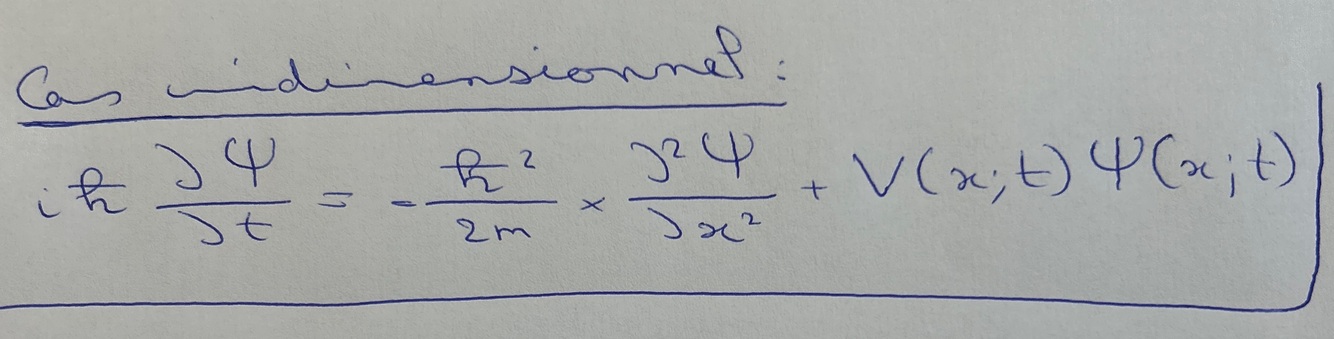 Cas unidimensionnel :
iħ ∂Ψ/∂t = - ħ²/2m × ∂²Ψ/∂x² + V(x;t) Ψ(x;t)